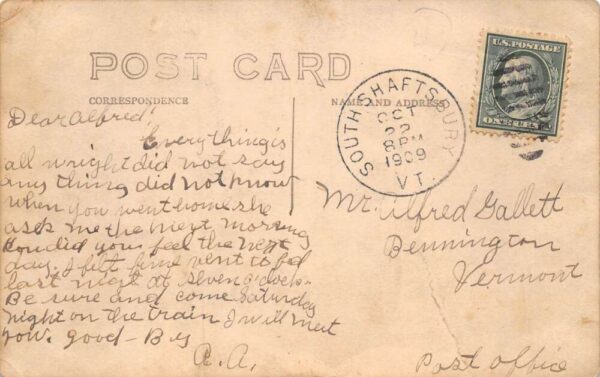 POST CARD
CORRESPONDENCE
NAME AND ADDRESS
U.S. POSTAGE
SOUTH SHAFTSBURY
OCT
22
8 PM
1909
VT.
Dear Alfred!
Everything is
all wright did not say
any thing did not know
when you went home she
ask me the next morning
How did you feel the next
day, I felt fine went to bed
last night at seven o'clock
Be sure and come Saturday
night on the train I will meet
you. Good-Bus
A.A.
Mr. Alfred Gallett
Bennington
Vermont
Post office